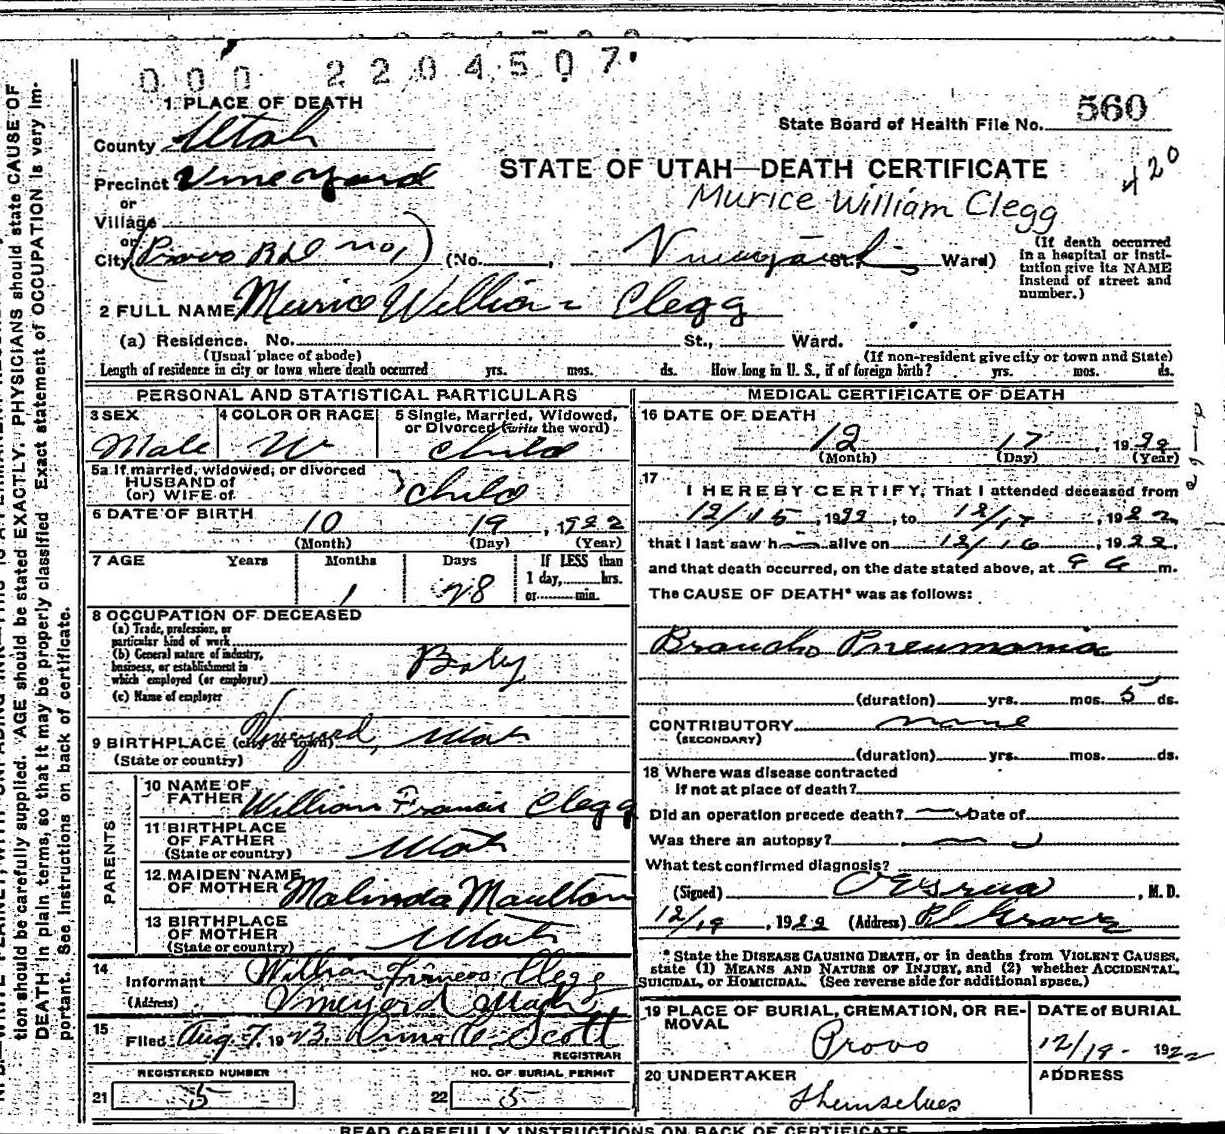 0 0 0 2 2 0 4 5 0 7
1 PLACE OF DEATH
State Board of Health File No. 560
County Utah
STATE OF UTAH—DEATH CERTIFICATE
420
Precinct Vineyard
Murice William Clegg
or
Village
or
City (Provo R D no 1) (No. , Vineyard St., Ward)
(If death occurred in a hospital or insti-
tution give its NAME
instead of street and
number.)
2 FULL NAME Murice William Clegg
(a) Residence. No. St., Ward.
(Usual place of abode) (If non-resident give city or town and State)
Length of residence in city or town where death occurred yrs. mos. ds. How long in U. S., if of foreign birth? yrs. mos. ds.
PERSONAL AND STATISTICAL PARTICULARS
3 SEX 4 COLOR OR RACE 5 Single, Married, Widowed,
or Divorced (write the word)
Male W child
5a If married, widowed, or divorced
HUSBAND of
(or) WIFE of child
6 DATE OF BIRTH
10 19 , 1922
(Month) (Day) (Year)
7 AGE Years Months Days If LESS than
1 day, hrs.
or min.
1 28
8 OCCUPATION OF DECEASED
(a) Trade, profession, or
particular kind of work
(b) General nature of industry,
business, or establishment in
which employed (or employer) Baby
(c) Name of employer
9 BIRTHPLACE (city or town) Vineyard, Utah
(State or country)
PARENTS
10 NAME OF
FATHER William Francis Clegg
11 BIRTHPLACE
OF FATHER
(State or country) Utah
12 MAIDEN NAME
OF MOTHER Malinda Moulton
13 BIRTHPLACE
OF MOTHER
(State or country) Utah
14
Informant William Francis Clegg
(Address) Vineyard Utah
15
Filed Aug. 7, 1923. Anna E Scott
REGISTRAR
REGISTERED NUMBER NO. OF BURIAL PERMIT
21 5 22 5
MEDICAL CERTIFICATE OF DEATH
16 DATE OF DEATH
12 17 , 1922
(Month) (Day) (Year)
17
I HEREBY CERTIFY, That I attended deceased from
12/15, 1922, to 12/17, 1922,
that I last saw h alive on 12/16, 1922,
and that death occurred, on the date stated above, at 9 a m.
The CAUSE OF DEATH* was as follows:
Broncho Pneumonia
(duration) yrs. mos. 5 ds.
CONTRIBUTORY none
(SECONDARY)
(duration) yrs. mos. ds.
18 Where was disease contracted
If not at place of death?
Did an operation precede death? — Date of
Was there an autopsy?
What test confirmed diagnosis?
(Signed) , M. D.
12/19, 1922 (Address) Pl Grove
* State the DISEASE CAUSING DEATH, or in deaths from VIOLENT CAUSES,
state (1) MEANS AND NATURE OF INJURY, and (2) whether ACCIDENTAL,
SUICIDAL, or HOMICIDAL. (See reverse side for additional space.)
19 PLACE OF BURIAL, CREMATION, OR RE-
MOVAL
Provo
DATE of BURIAL
12/19- 1922
20 UNDERTAKER
themselves
ADDRESS
READ CAREFULLY INSTRUCTIONS ON BACK OF CERTIFICATE
tion should be carefully supplied. AGE should be stated EXACTLY. PHYSICIANS should state CAUSE OF
DEATH in plain terms, so that it may be properly classified. Exact statement of OCCUPATION is very im-
portant. See instructions on back of certificate.